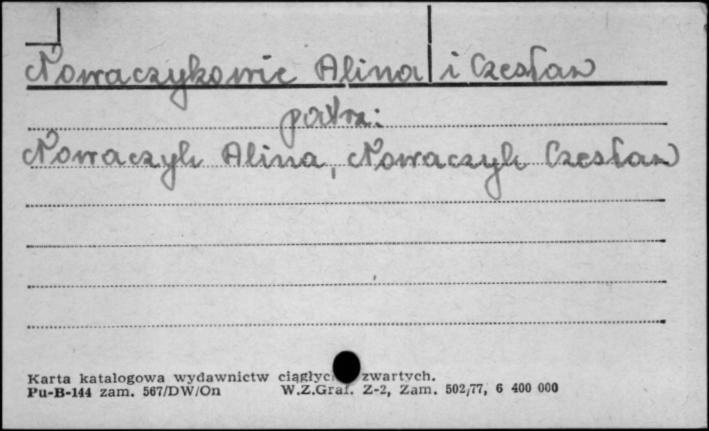 Nowaczykowie Alina i Czesław
patrz:
Nowaczyk Alina, Nowaczyk Czesław
Karta katalogowa wydawnictw ciągłyc zwartych.
Pu-B-144 zam. 567/DW/On W.Z.Graf. Z-2, Zam. 502/77, 6 400 000